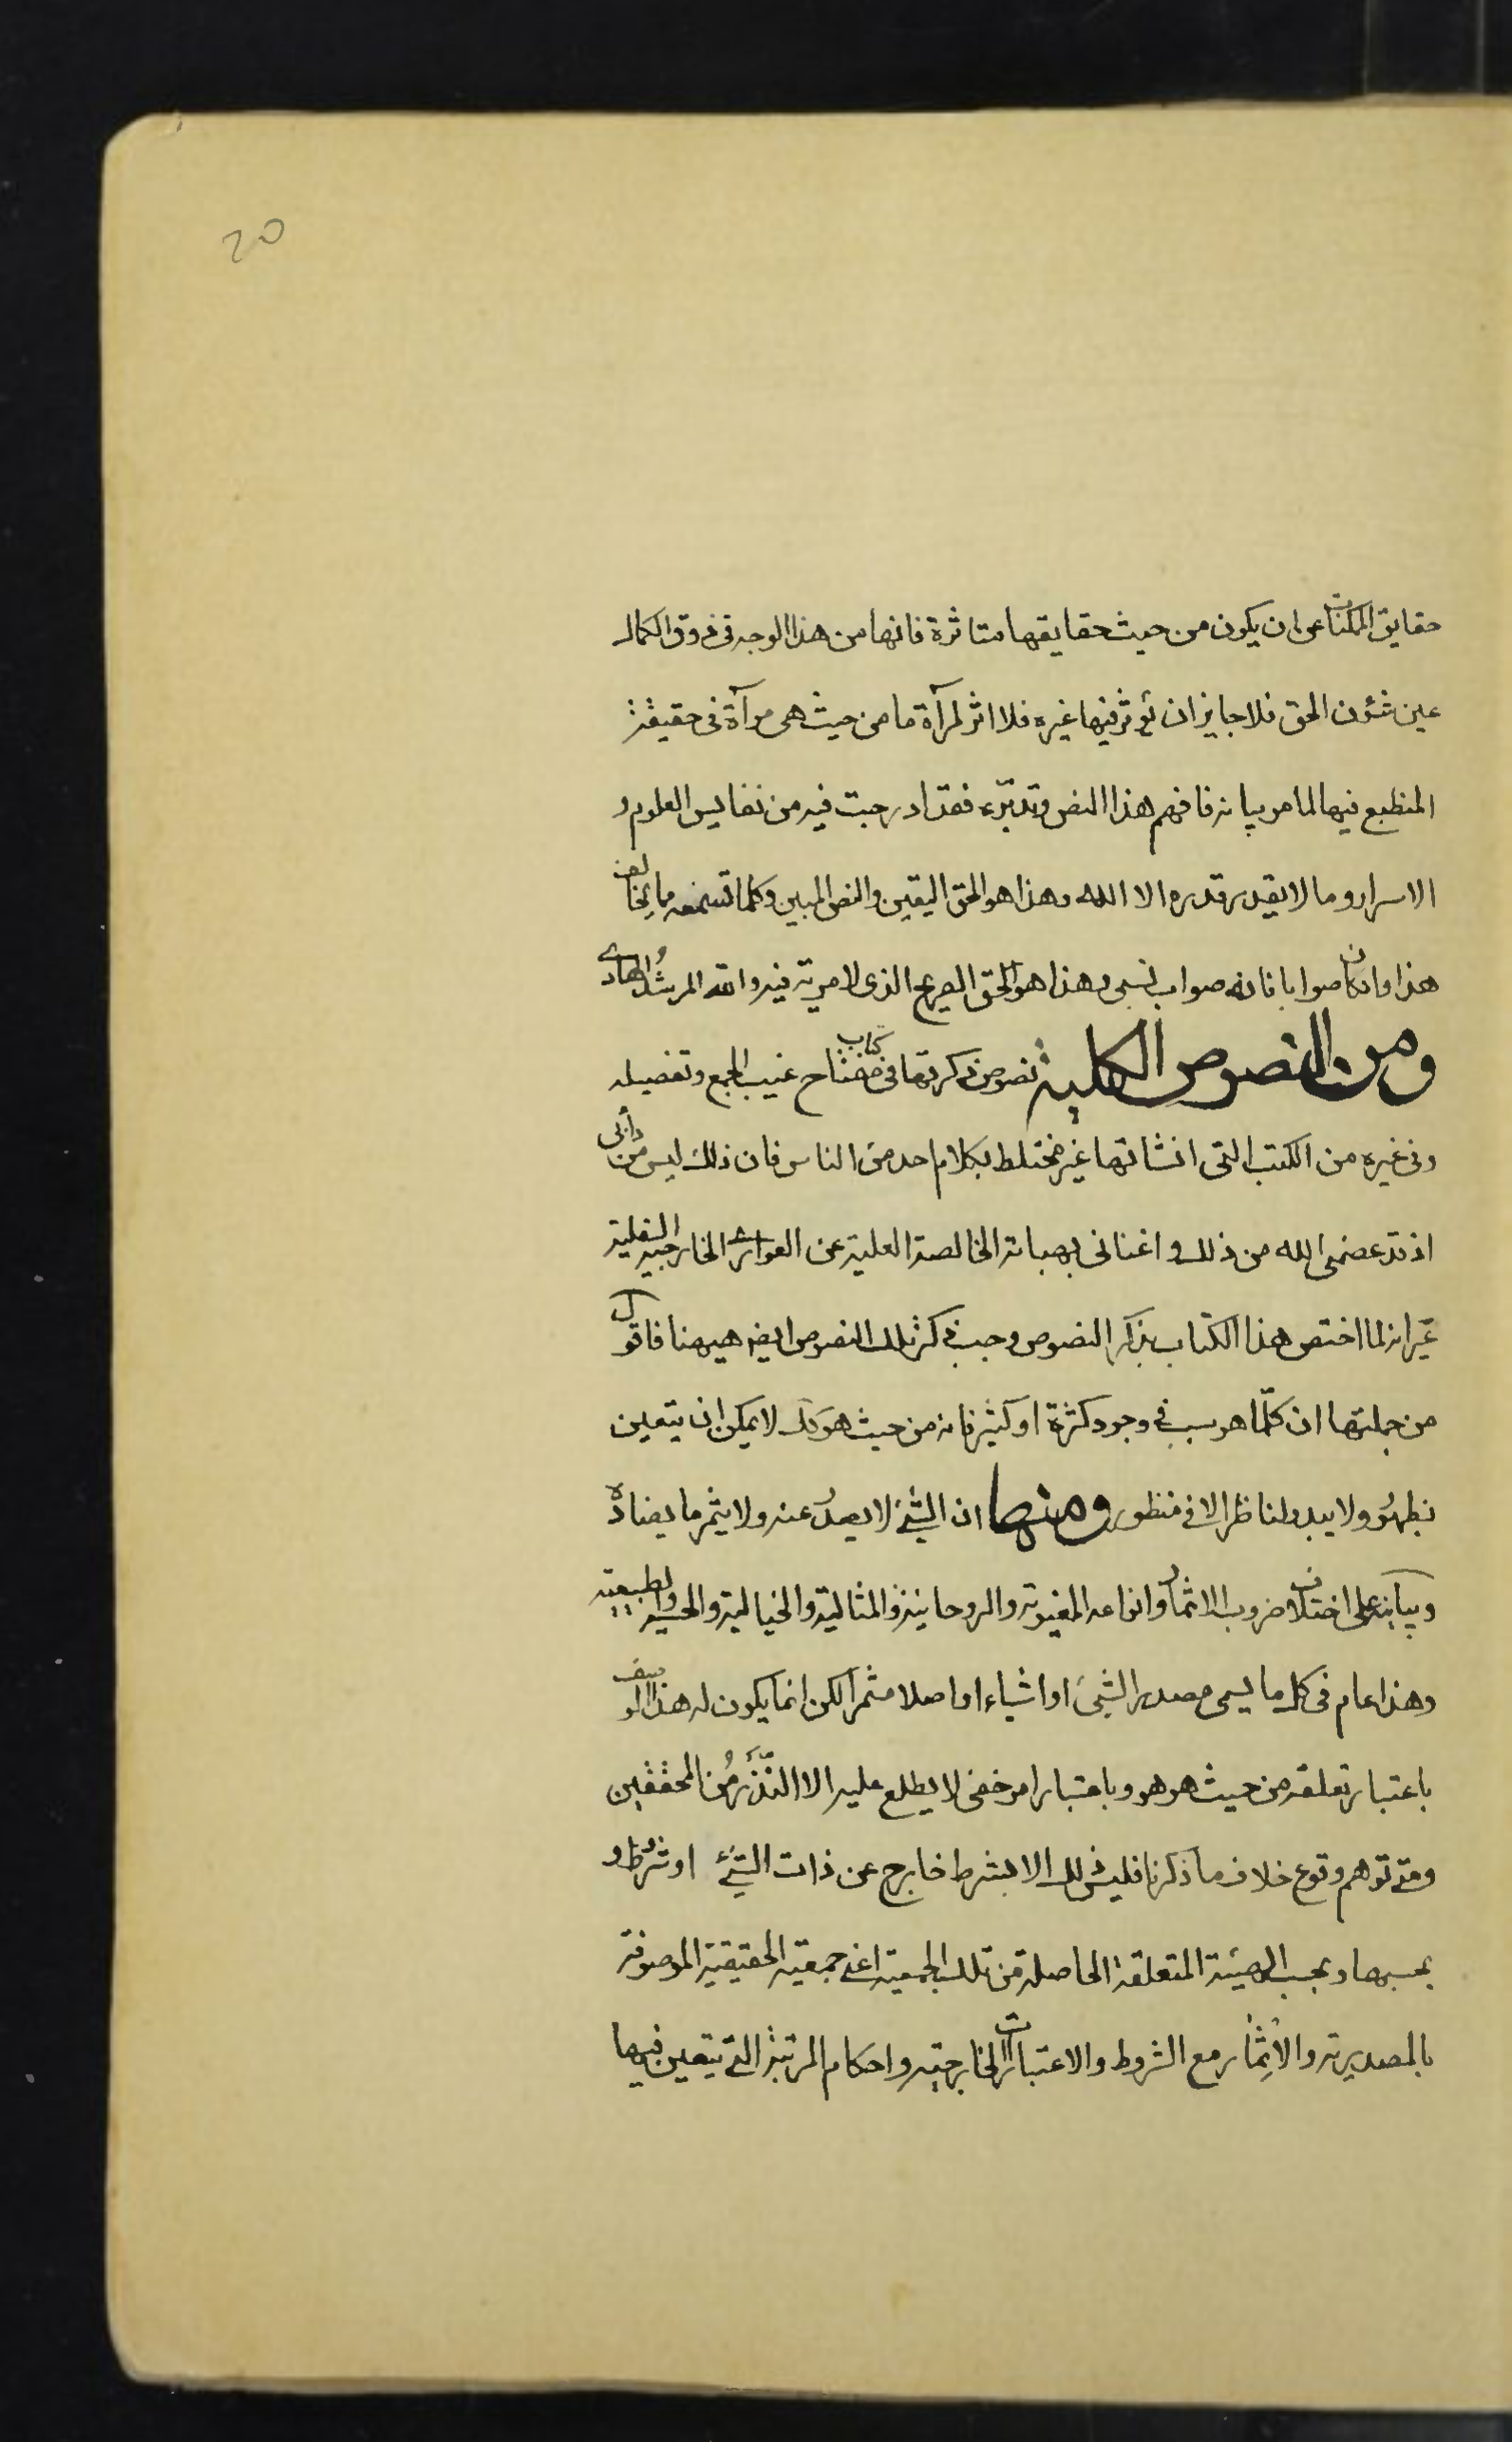 20
حقايق الممكنات عن ان يكون من حيث حقايقها متاثرة فانها من هذا الوجه فى ذوق الكمال
عين شئون الحق فلا جايز ان يؤثر فيها غيره فلا اثر لمرآة ما من حيث هى مرآة فى حقيقة
المنطبع فيها لما مر بيانه فافهم هذا النص وتدبّره فقد ادرجت فيه من نفايس العلوم و
الاسرار وما لا يقدر قدره الا الله وهذا هو الحق اليقين والنص المبين وكلما تسمعه مما يخالف
هذا وان كان صوابا فانه صواب نسبى وهذا هو الحق الصريح الذى لا مرية فيه والله المرشد الهادى
ومن النصوص الكلية نصوص ذكرتها فى كتاب مفتاح غيب الجمع وتفصيله
وفى غيره من الكتب التى انشاتها غير مختلط بكلام احد من الناس فان ذلك ليس من دأبى
اذ قد عصمنى الله من ذلك واغنانى بهباته الخالصة العلية عن العوارى الخارجيه السفلية
غير انه لما اختص هذا الكتاب بذكر النصوص وجب ذكر تلك النصوص ايضا هيهنا فاقول
من جملتها ان كلّما هو سبب فى وجود كثرة او كثير فانه من حيث هو كك لا يمكن ان يتعين
بظهور ولا يبدو لناظر الا فى منظور ومنها ان الشئ لا يصدر عنه ولا يثمر ما يضاده
ويباينه على اختلاف ضروب الاثمار وانواعه المعنوية والروحانية والمثالية والخيالية والحسيه والطبيعية
وهذا عام فى كل ما يسمى مصدرا لشئ او اشياء او اصلا مثمرا لكن انما يكون له هذا الوصف
باعتبار تعلقه من حيث هو هو وباعتبار امر خفى لا يطلع عليه الا النّذر من المحققين
ومتى توهم وقوع خلاف ما ذكرنا فليس ذلك الا بشرط خارج عن ذات الشئ او شروط و
بحسبها وبحسب الهيئة المتعلقة الحاصلة من تلك الجمعية اعنى جمعية الحقيقية الموصوفة
بالمصدرية والاثمار مع الشروط والاعتبارات الخارجيه واحكام المرتبة التى يتعين فيها